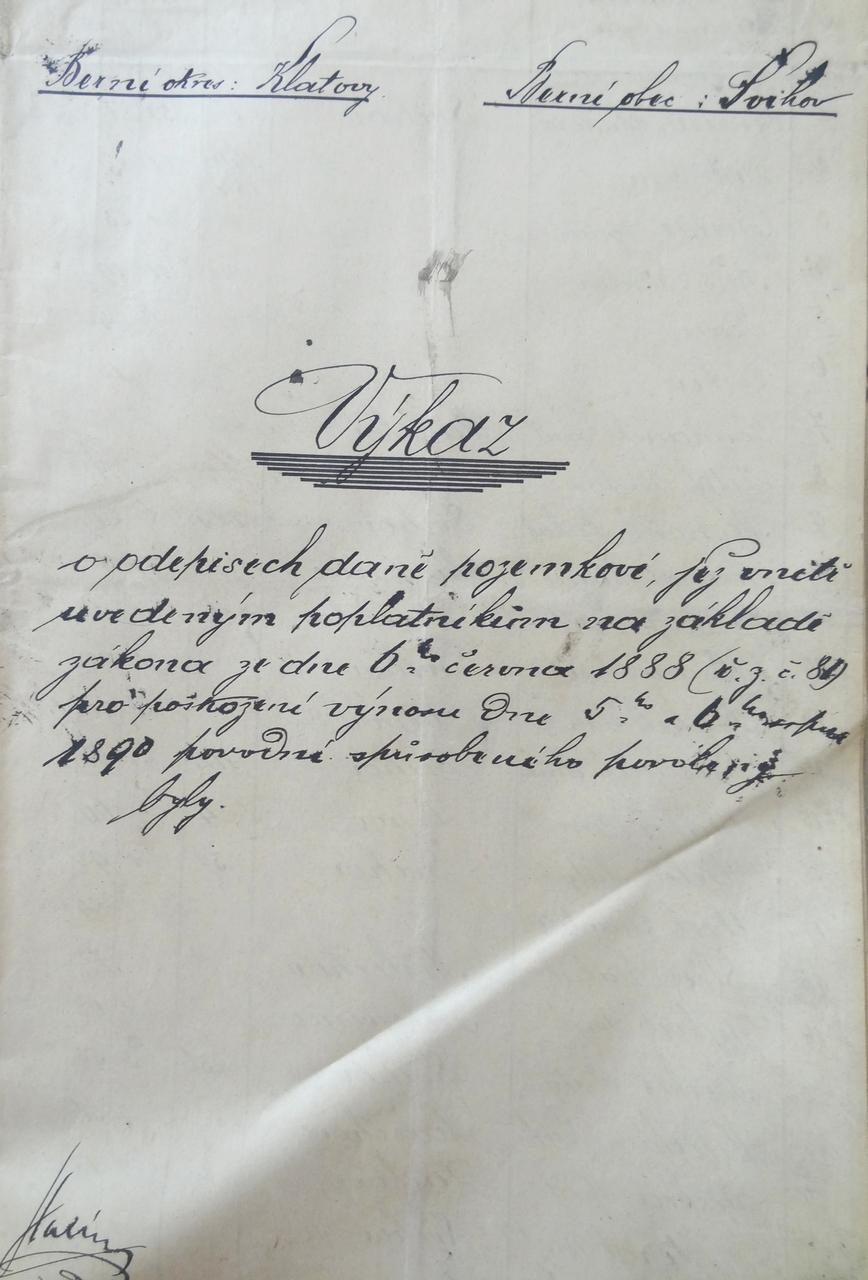 Berní okres: Klatovy.
Berní obec: Švihov
Výkaz
o odepisech daně pozemkové, jež vnitř
uvedeným poplatníkům na základě
zákona ze dne 6ho června 1888 (ř. z. č. 81)
pro poškození výnosu dne 5ho a 6ho srpna
1890 povodní spůsobeného povoleny
byly.